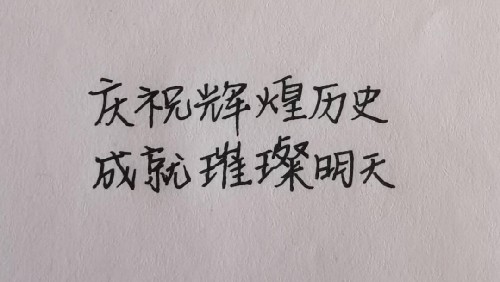 庆祝辉煌历史
成就璀璨明天